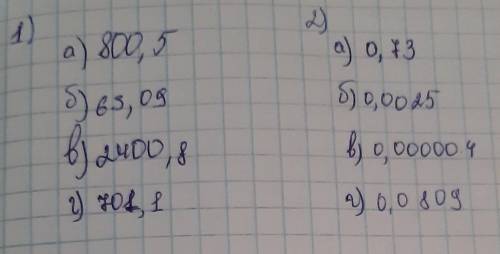 1)
а) 800,5
б) 69,09
в) 2400,8
г) 701,1
2)
а) 0,73
б) 0,0025
в) 0,000004
г) 0,0809